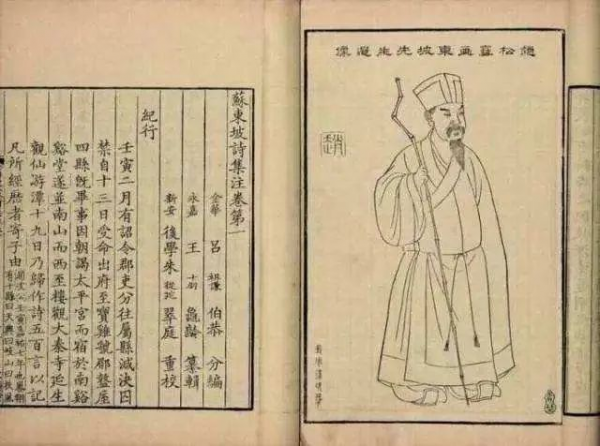 趙松雪畫東坡先生遺像
蘇東坡詩集注卷第一
金華 呂 祖謙 伯恭 分編
永嘉 王 十朋 龜齡 纂輯
新安 後學朱 從延 翠庭 重校
紀行
壬寅二月有詔令郡吏分往屬縣減決囚
禁自十三日受命出府至寶雞虢郿盩厔
四縣既畢事因朝謁太平宮而宿於南谿
谿堂遂並南山而西至樓觀大秦寺延生
觀仙游潭十九日乃歸作詩五百言以記
凡所經歷者寄子由
有十縣曰天興曰岐山曰扶風